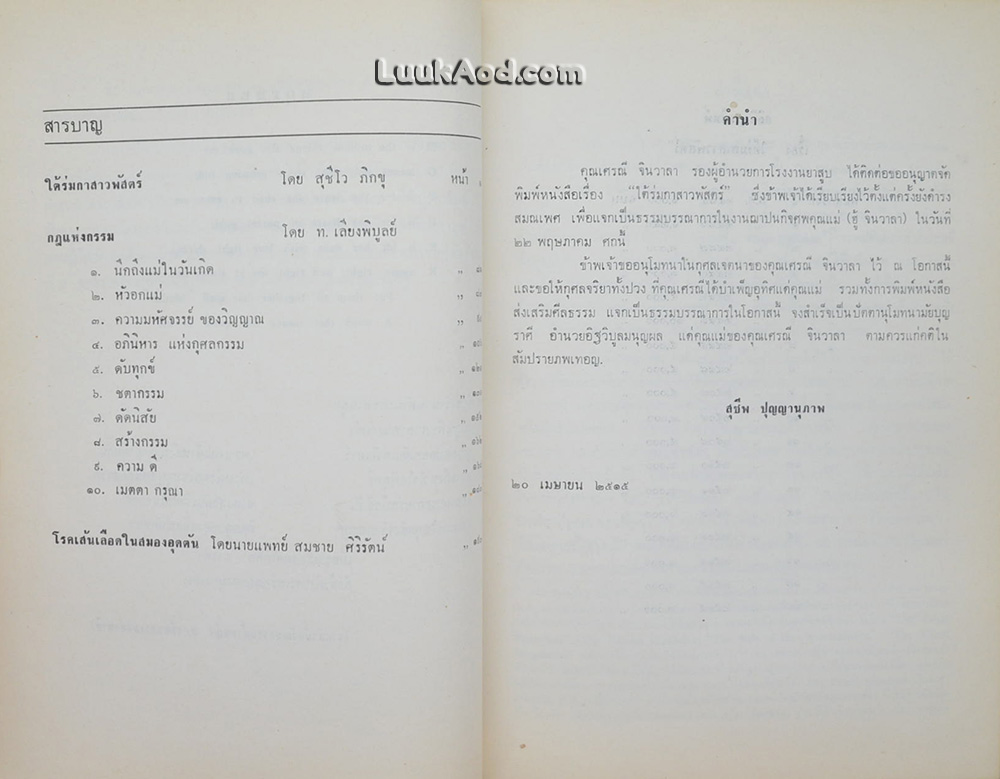 LuukAod.com
สารบาญ
ใต้ร่มกาสาวพัสตร์ โดย สุชีโว ภิกขุ หน้า
กฎแห่งกรรม โดย ท. เลียงพิบูลย์
๑. นึกถึงแม่ในวันเกิด ,,
๒. หัวอกแม่ ,,
๓. ความมหัศจรรย์ ของวิญญาณ ,,
๔. อภินิหาร แห่งกุศลกรรม ,,
๕. ดับทุกข์ ,,
๖. ชตากรรม ,,
๗. ดัดนิสัย ,,
๘. สร้างกรรม ,,
๙. ความ ดี ,,
๑๐. เมตตา กรุณา ,,
โรคเส้นเลือดในสมองอุดตัน โดยนายแพทย์ สมชาย ศิริรัตน์ ,,
คำนำ
คุณเศรณี จินวาลา รองผู้อำนวยการโรงงานยาสูบ ได้ติดต่อขออนุญาตจัด
พิมพ์หนังสือเรื่อง "ใต้ร่มกาสาวพัสตร์" ซึ่งข้าพเจ้าได้เรียบเรียงไว้ตั้งแต่ครั้งยังดำรง
สมณเพศ เพื่อแจกเป็นธรรมบรรณาการในงานฌาปนกิจศพคุณแม่ (ฮู้ จินวาลา) ในวันที่
๒๒ พฤษภาคม ศกนี้
ข้าพเจ้าขออนุโมทนาในกุศลเจตนาของคุณเศรณี จินวาลา ไว้ ณ โอกาสนี้
และขอให้กุศลจริยาทั้งปวง ที่คุณเศรณีได้บำเพ็ญอุทิศแด่คุณแม่ รวมทั้งการพิมพ์หนังสือ
ส่งเสริมศีลธรรม แจกเป็นธรรมบรรณาการในโอกาสนี้ จงสำเร็จเป็นปัตตานุโมทนามัยบุญ
ราศี อำนวยอิฐวิบูลมนุญผล แด่คุณแม่ของคุณเศรณี จินวาลา ตามควรแก่คติใน
สัมปรายภพเทอญ.
สุชีพ ปุญญานุภาพ
๒๐ เมษายน ๒๕๑๕